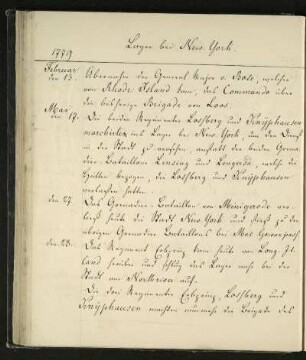 Lager bei New York.
1779
Februar den 13. Übernahm der General Major v. Bose, welcher
von Rhode Island kam, das Commando über
die bisherige Brigade von Loos.
May den 17. Die beiden Regimenter Lossberg und Knÿphausen
marschirten ins Lager bei New York, um den Dienst
in der Stadt zu versehen, anstatt der beiden Grena-
dier Bataillone Lensing und Lengerke, welche die
Hütten bezogen, die Lossberg und Knÿphausen
verlassen hatten.
den 27. Das Grenadier Bataillon von Minnigerode ver-
ließ heute die Stadt New York und stieß zu den
übrigen Grenadier Bataillons bei
den 28. Das Regiment kam heute von Long Is-
land herüber und schlug das Lager nahe bei der
Stadt am Northriver auf.
Die drei Regimenter Lossberg und
Knÿphausen machten nunmehr die Brigade des